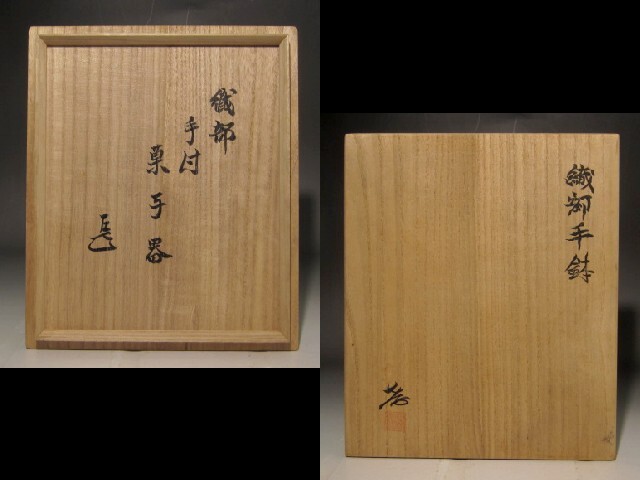 織部
手付
菓子器
織部手鉢